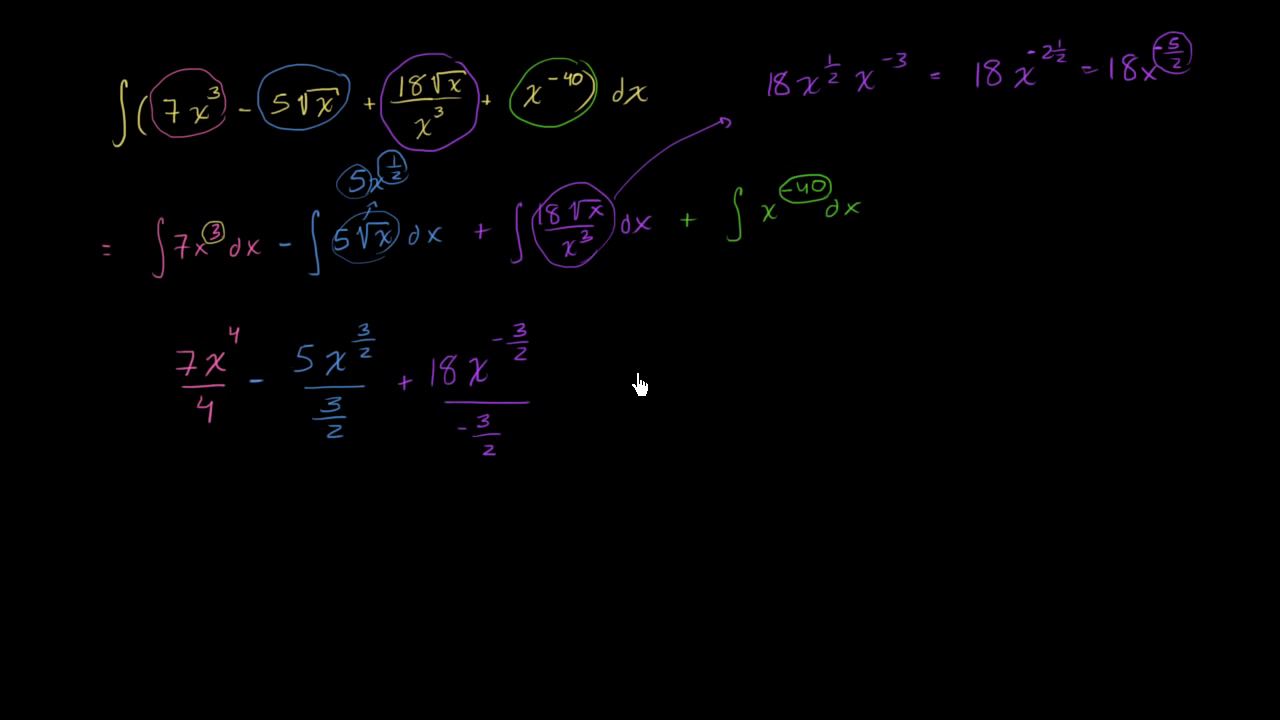 ∫(7x³ - 5√x + 18√x/x³ + x⁻⁴⁰) dx
18x^(1/2) x^(-3) = 18x^(-2 1/2) = 18x^(-5/2)
5x^(1/2)
= ∫7x³dx - ∫5√x dx + ∫18√x/x³ dx + ∫x⁻⁴⁰dx
7x⁴/4 - 5x^(3/2)/(3/2) + 18x^(-3/2)/(-3/2)